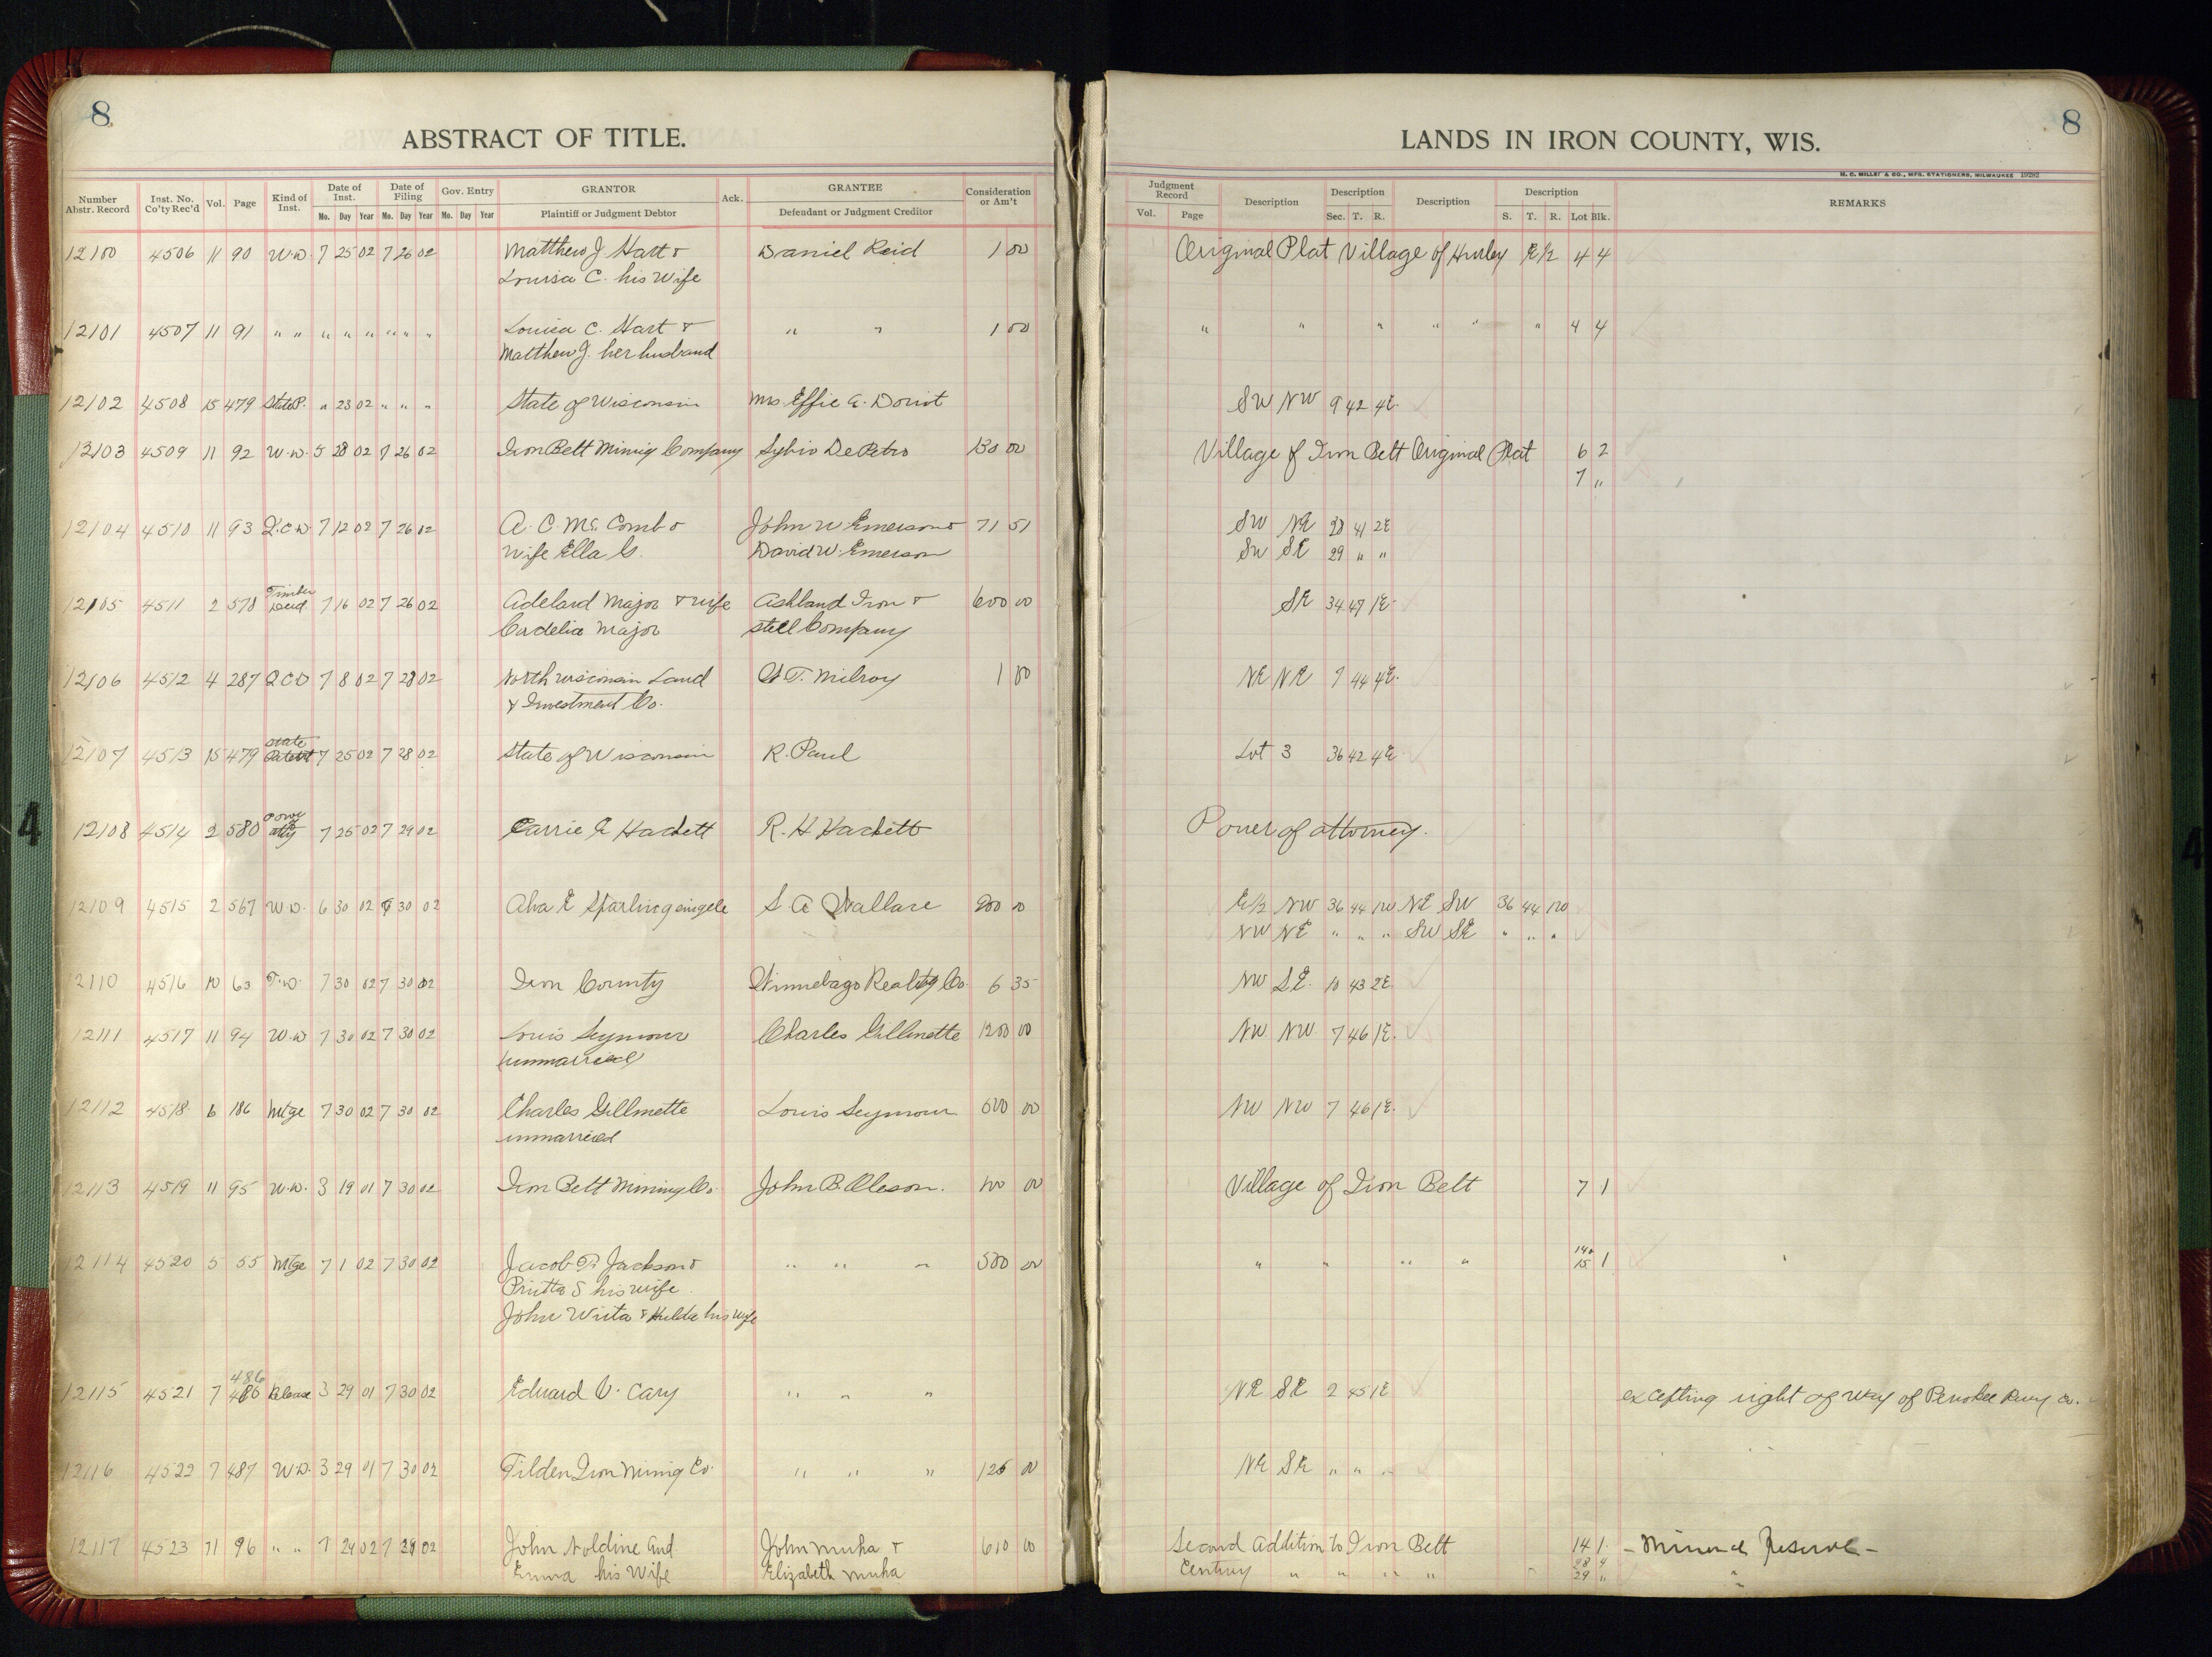 8
ABSTRACT OF TITLE.
Number Abstr. Record | Inst. No. Co'ty Rec'd | Vol. | Page | Kind of Inst. | Date of Inst. Mo. Day Year | Date of Filing Mo. Day Year | Gov. Entry Mo. Day Year | GRANTOR Plaintiff or Judgment Debtor | Ack. | GRANTEE Defendant or Judgment Creditor | Consideration or Am't
8
LANDS IN IRON COUNTY, WIS.
H. C. MILLER & CO., MFG. STATIONERS, MILWAUKEE 19282
Judgment Record Vol. Page | Description | Description Sec. T. R. | Description | Description S. T. R. Lot Blk. | REMARKS
12100 4506 11 90 W.D. 7 25 02 7 26 02 Matthew J. Hart & Daniel Reid 1 00 Original Plat Village of Hurley E1/2 4 4
Louisa C. his wife
12101 4507 11 91 " " " " " " " " Louisa C. Hart & " " 1 00 " " " " " " 4 4
Matthew J. her husband
12102 4508 15 479 State P. " 23 02 " " " State of Wisconsin Mrs Effie A. Doriot SW NW 9 42 4E
12103 4509 11 92 W.D. 5 28 02 7 26 02 Iron Belt Mining Company Sylvio DePetro 130 00 Village of Iron Belt Original Plat 6 2
7 "
12104 4510 11 93 Q.C.D. 7 12 02 7 26 02 A. C. McComb & John W Emerson & 71 51 SW NE 28 41 2E
Wife Ella G. David W. Emerson SW SE 29 " "
12105 4511 2 578 Timber Deed 7 16 02 7 26 02 Adelard Major & wife Ashland Iron & 600 00 SE 34 47 1E
Cordelia Major Steel Company
12106 4512 4 287 QCD 7 8 02 7 28 02 North Wisconsin Land T. Milroy 1 00 NE NE 7 44 4E.
& Investment Co.
12107 4513 15 479 State Patent 7 25 02 7 28 02 State of Wisconsin R. Paul Lot 3 36 42 4E
12108 4514 2 580 Power atty 7 25 02 7 29 02 Carrie E Hackett R. H Hackett Power of attorney.
12109 4515 2 567 W.D. 6 30 02 7 30 02 Alva E Sparling single S. A Wallace 200 00 E1/2 NW 36 44 1W NE SW 36 44 1W
NW NE " " " SW SE " " "
12110 4516 10 63 T.D. 7 30 02 7 30 02 Iron County Winnebago Realty Co. 6 35 NW SE. 10 43 2E
12111 4517 11 94 W.D 7 30 02 7 30 02 Louis Seymour Charles Gillmette 1200 00 NW NW. 7 46 1E.
unmarried
12112 4518 6 186 Mtge 7 30 02 7 30 02 Charles Gillmette Louis Seymour 600 00 NW NW 7 46 1E.
unmarried
12113 4519 11 95 W.D. 3 19 01 7 30 02 Iron Belt Mining Co. John B. Oleson. 100 00 Village of Iron Belt 7 1
12114 4520 5 55 Mtge 7 1 02 7 30 02 Jacob T. Jackson & " " " 500 00 " " " " 14& 15 1
S his wife
John Wiita & Hulda his wife
12115 4521 7 486 486 Release 3 29 01 7 30 02 Edward V. Cary " " " NE SE 2 45 1E excepting right of way of Penokee Rwy Co.
12116 4522 7 487 W.D. 3 29 01 7 30 02 Tilden Iron Mining Co. " " " 125 00 NE SE " " "
12117 4523 11 96 " " 7 24 02 7 29 02 John Noldine and John Muha & 610 00 Second Addition to Iron Belt 14 1 - Mineral Reserve -
Emma his wife Elizabeth Muha Century " " " " 28 4 "
29 "
4
4